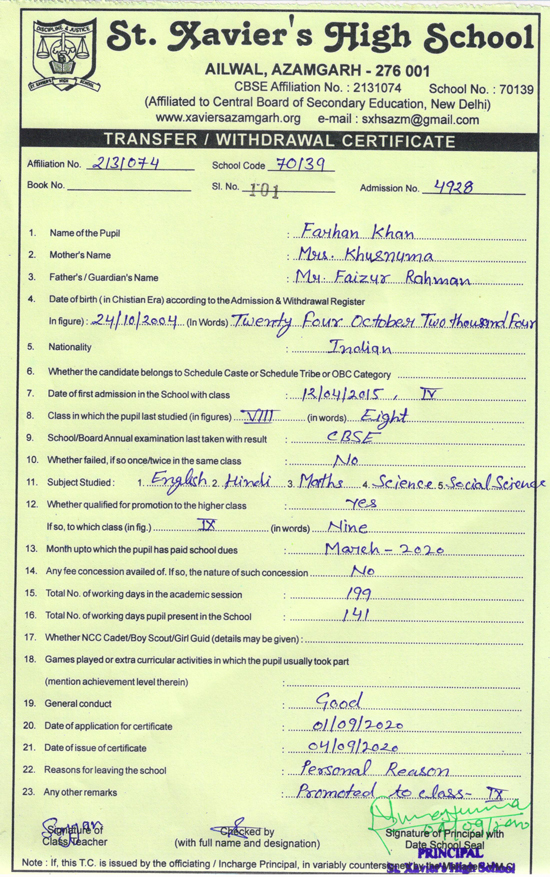 DISCIPLINE & JUSTICE
ST. XAVIER'S HIGH SCHOOL
St. Xavier's High School
AILWAL, AZAMGARH - 276 001
CBSE Affiliation No. : 2131074 School No. : 70139
(Affiliated to Central Board of Secondary Education, New Delhi)
www.xaviersazamgarh.org e-mail : sxhsazm@gmail.com
TRANSFER / WITHDRAWAL CERTIFICATE
Affiliation No. 2131074 School Code 70139
Book No. Sl. No. 101 Admission No. 4928
1. Name of the Pupil : Farhan Khan
2. Mother's Name : Mrs. Khusnuma
3. Father's / Guardian's Name : Mr. Faizur Rahman
4. Date of birth ( in Chistian Era) according to the Admission & Withdrawal Register
In figure) : 24/10/2004 (In Words) Twenty Four October Two thousand Four
5. Nationality : Indian
6. Whether the candidate belongs to Schedule Caste or Schedule Tribe or OBC Category
7. Date of first admission in the School with class : 12/04/2015, IV
8. Class in which the pupil last studied (in figures) VIII (in words) Eight
9. School/Board Annual examination last taken with result : CBSE
10. Whether failed, if so once/twice in the same class : No
11. Subject Studied : 1. English 2. Hindi 3. Maths 4. Science 5. Social Science
12. Whether qualified for promotion to the higher class : Yes
If so, to which class (in fig.) IX (in words) Nine
13. Month upto which the pupil has paid school dues : March - 2020
14. Any fee concession availed of. If so, the nature of such concession No
15. Total No. of working days in the academic session : 199
16. Total No. of working days pupil present in the School : 141
17. Whether NCC Cadet/Boy Scout/Girl Guid (details may be given) :
18. Games played or extra curricular activities in which the pupil usually took part
(mention achievement level therein) :
19. General conduct : Good
20. Date of application for certificate : 01/09/2020
21. Date of issue of certificate : 04/09/2020
22. Reasons for leaving the school : Personal Reason
23. Any other remarks : Promoted to class- IX
Signature of Class/Teacher
Checked by (with full name and designation)
Signature of Principal with Date School Seal
PRINCIPAL
Note : If, this T.C. is issued by the officiating / Incharge Principal, in variably countersigned by the
St. Xavier's High School